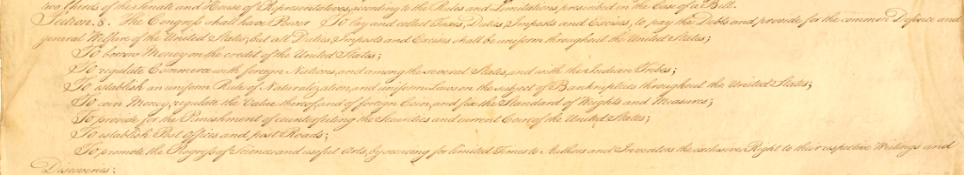 two thirds of the Senate and House of Representatives, according to the Rules and Limitations prescribed in the Case of a Bill.
Section. 8. The Congress shall have Power To lay and collect Taxes, Duties, Imposts and Excises, to pay the Debts and provide for the common Defence and
general Welfare of the United States; but all Duties, Imposts and Excises shall be uniform throughout the United States;
To borrow Money on the credit of the United States;
To regulate Commerce with foreign Nations, and among the several States, and with the Indian Tribes;
To establish an uniform Rule of Naturalization, and uniform Laws on the subject of Bankruptcies throughout the United States;
To coin Money, regulate the Value thereof, and of foreign Coin, and fix the Standard of Weights and Measures;
To provide for the Punishment of counterfeiting the Securities and current Coin of the United States;
To establish Post Offices and post Roads;
To promote the Progress of Science and useful Arts, by securing for limited Times to Authors and Inventors the exclusive Right to their respective Writings and
Discoveries;